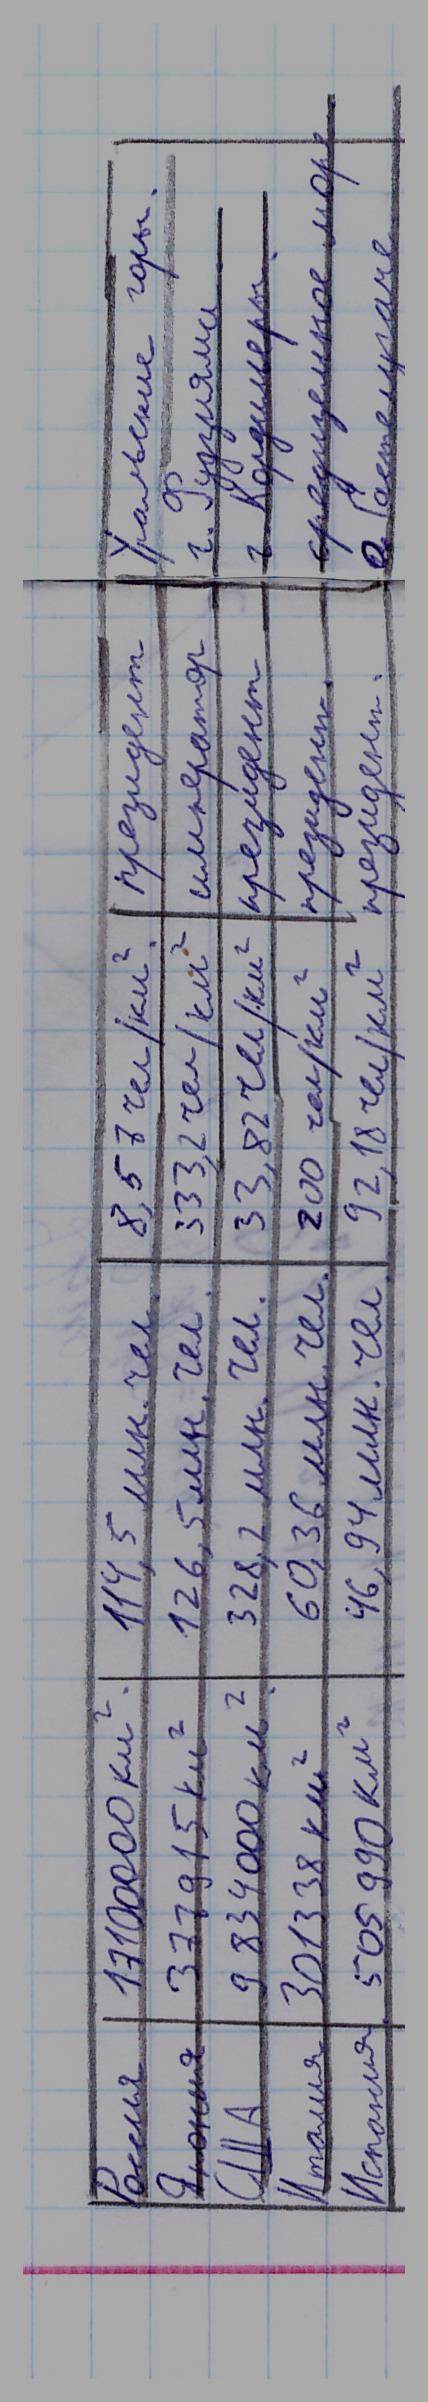 Россия 17100000 км². 114,5 млн. чел. 8,57 чел/км². президент Уральские горы.
Япония 377915 км² 126,5 млн. чел. 333,2 чел/км² император г. Фудзияма
США 9834000 км². 328,2 млн. чел. 33,82 чел/км² президент г Кордилеры.
Италия 301338 км² 60,36 млн. чел. 200 чел/км² президент. средиземное море
Испания 505990 км² 46,94 млн. чел. 92,18 чел/км² президент. о.